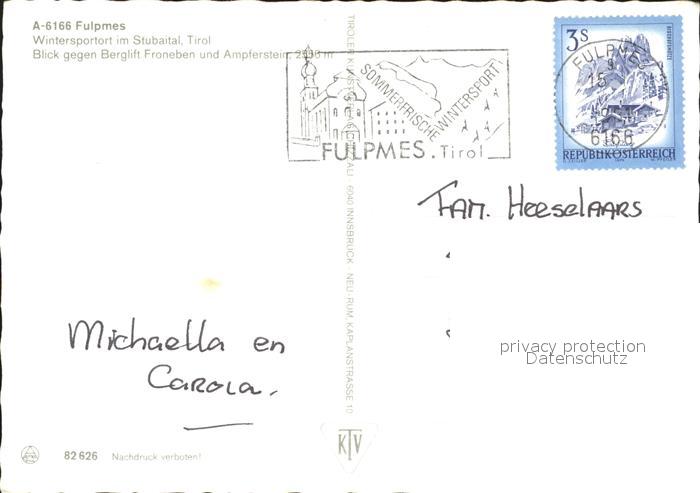 A-6166 Fulpmes
Wintersportort im Stubaital, Tirol
Blick gegen Berglift Froneben und Ampferstein,
SOMMERFRISCHE
WINTERSPORT
FULPMES. Tirol
3s
FULPMES
15
6166
REPUBLIK ÖSTERREICH
6040 INNSBRUCK - NEU-RUM, KAPLANSTRASSE 10
Fam. Heeselaars
privacy protection
Datenschutz
Michaella en
Carola.
KTV
82 626 Nachdruck verboten!